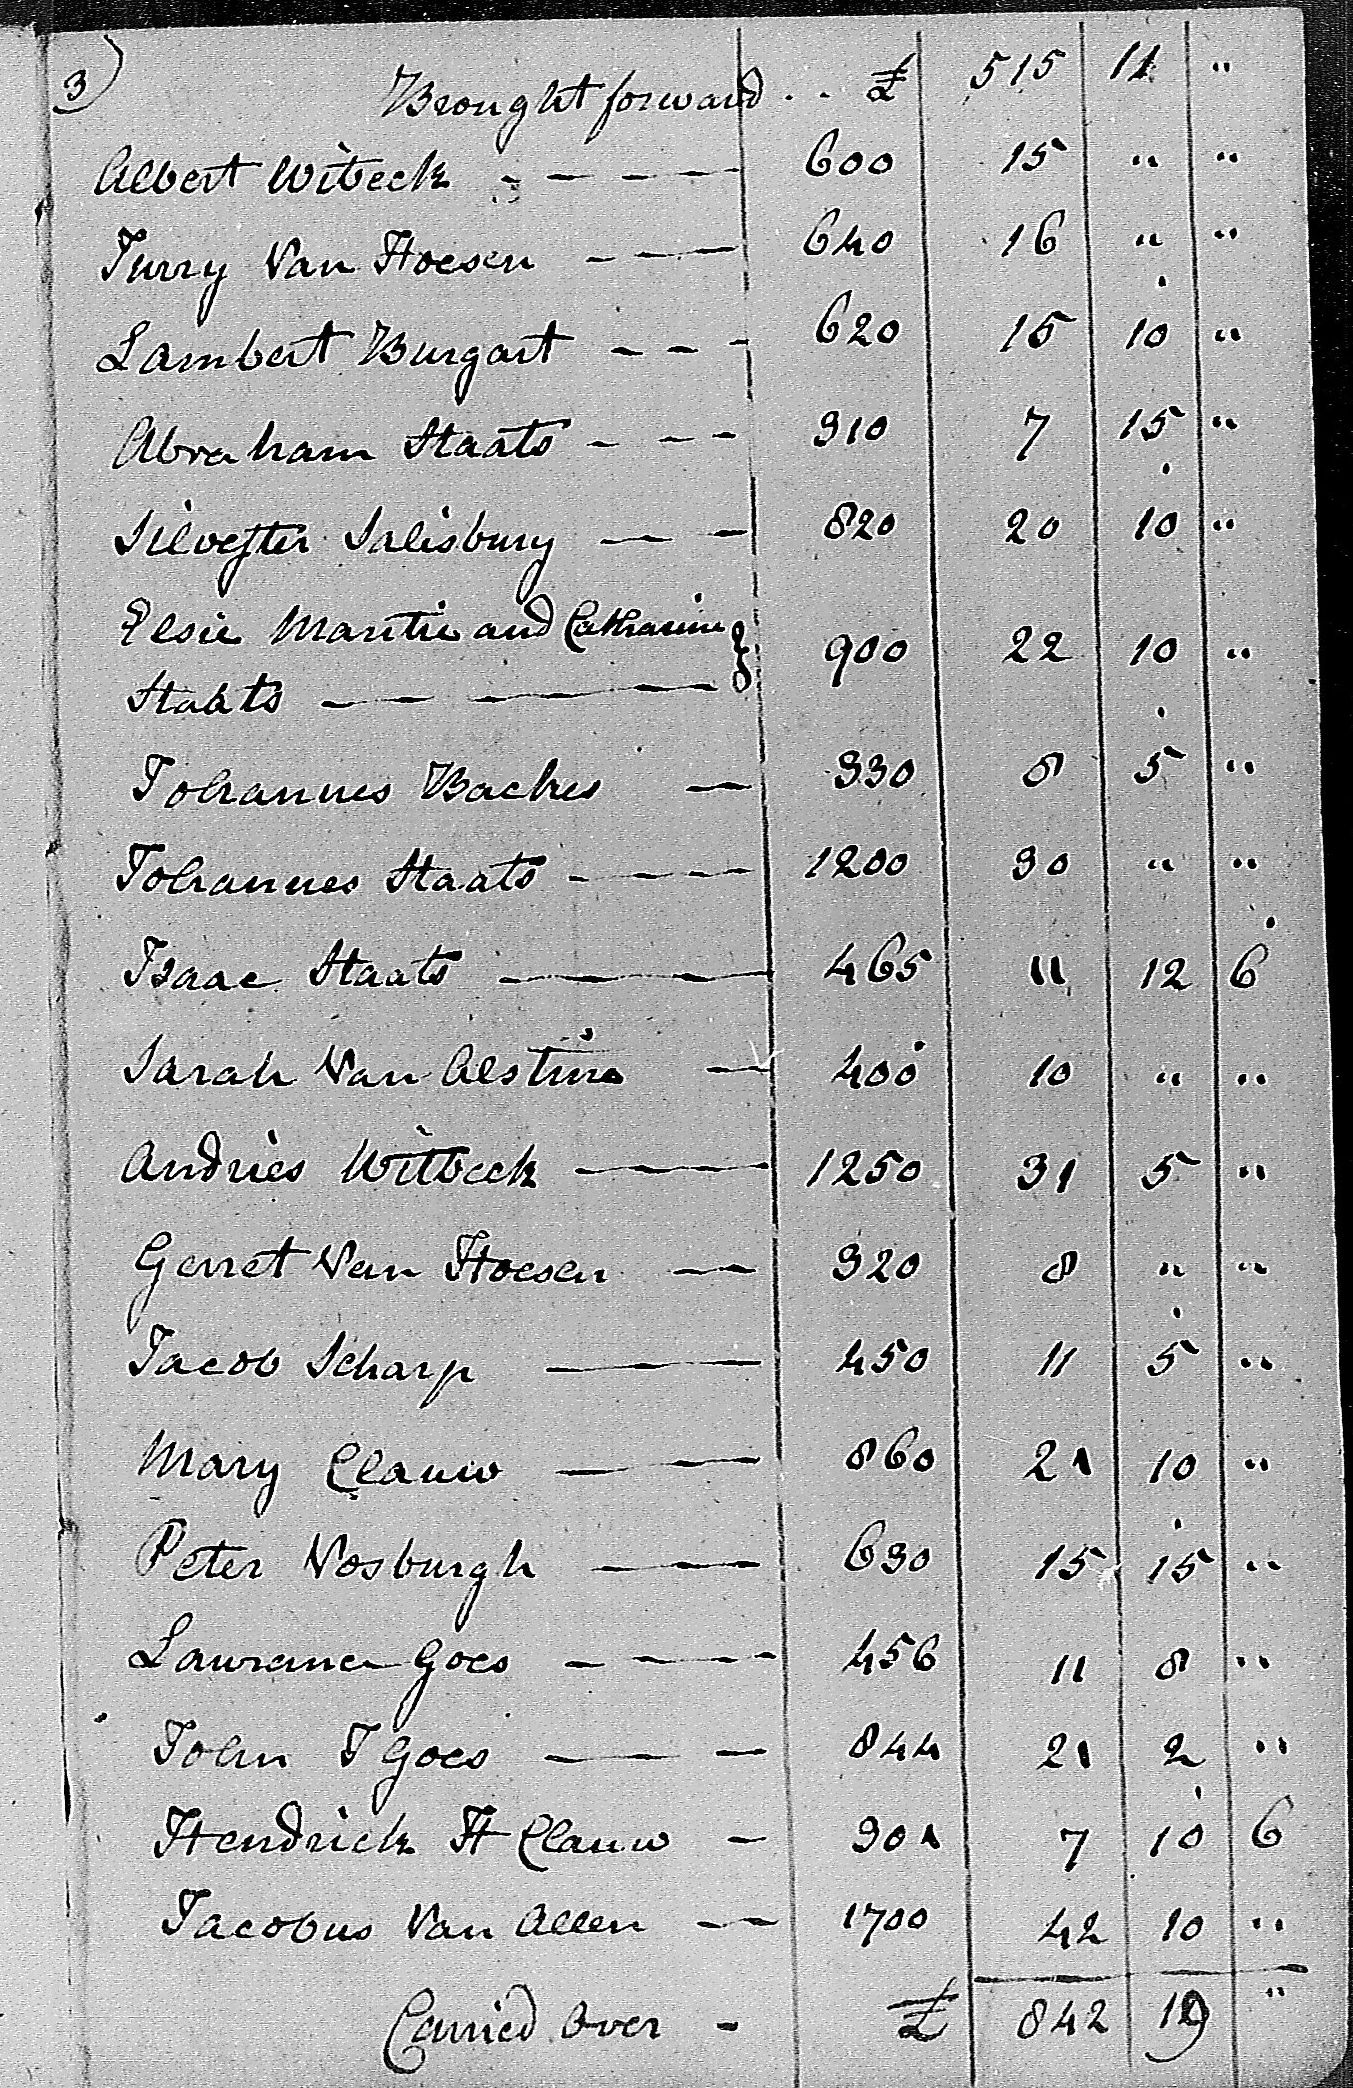 3)
Brought forward . . £ 515 11 "
Albert Witbeck - - - - 600 15 " "
Jurry Van Hoesen - - - 640 16 " "
Lambert Burgart - - - 620 15 10 "
Abraham Staats - - - 310 7 15 "
Silvester Salisbury — — 820 20 10 "
Elsie Maritie and Catharine }
Staats — — — — } 900 22 10 "
Johannes Backes — 330 8 5 "
Johannes Staats - - - - 1200 30 " "
Isaac Staats — — — 465 11 12 6
Sarah Van Alstine — 400 10 " "
Andries Witbeck — — — 1250 31 5 "
Gerret Van Hoesen — — 320 8 " "
Jacob Scharp — — — 450 11 5 "
Mary Clauw — — — 860 21 10 "
Peter Vosburgh — — — 630 15 15 "
Lawrence Goes - - - - 456 11 8 "
John J Goes — — — 844 21 2 "
Hendrick H Clauw — 301 7 10 6
Jacobus Van Allen — — 1700 42 10 "
Carried Over - £ 842 19 "